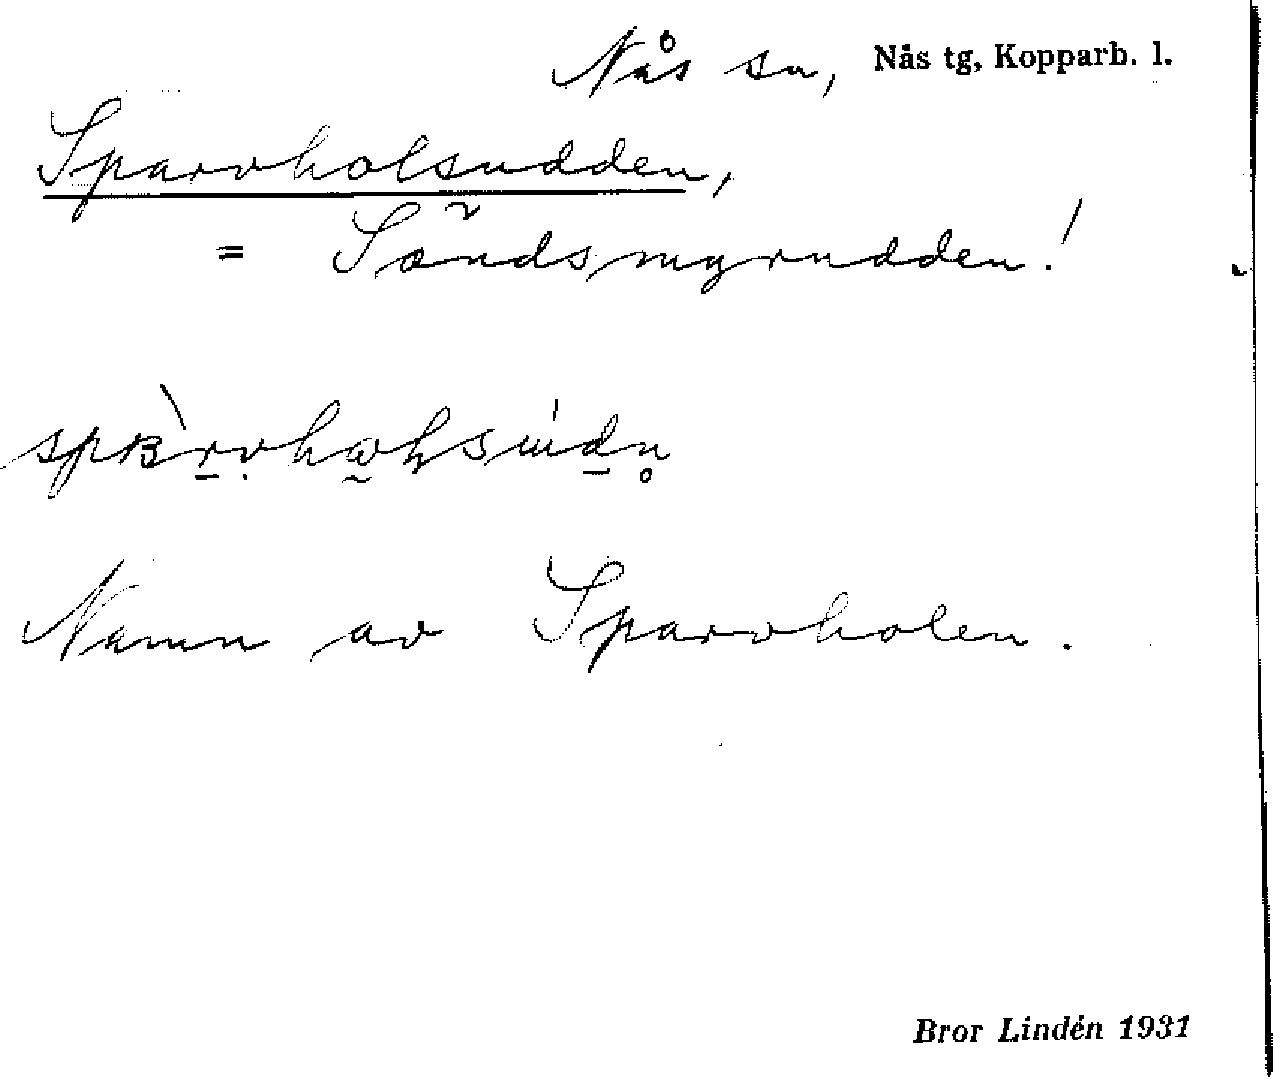 Nås sn, Nås tg, Kopparb. l.
Sparvholsudden,
= Söndsmyrudden!
Namn av Sparvholen.
Bror Lindén 1931